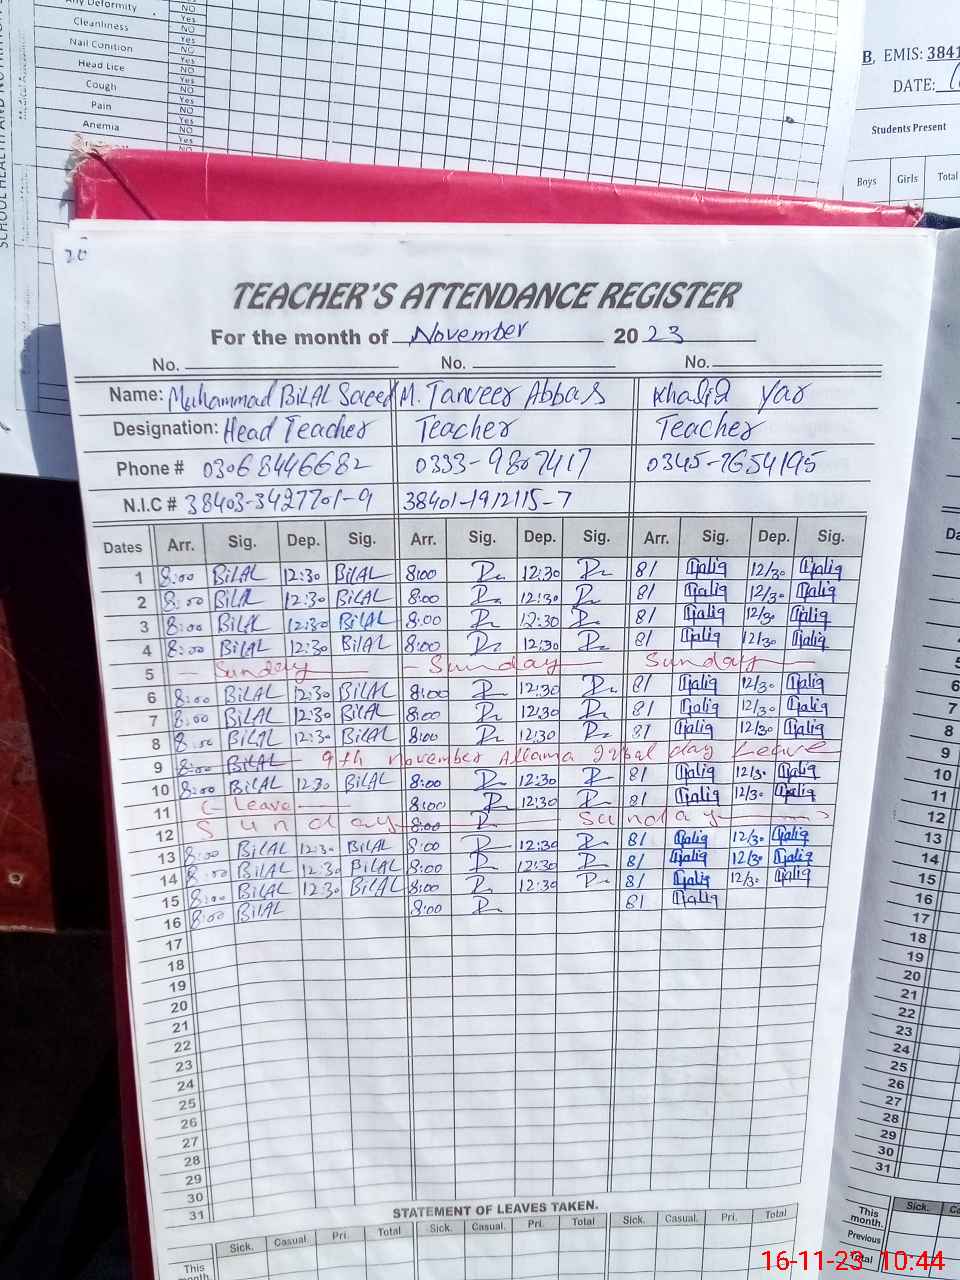 Any Deformity NO
Cleanliness Yes NO
Nail Conition Yes NO
Head Lice Yes NO
Cough Yes NO
Pain Yes NO
Anemia Yes NO
B, EMIS: 3841
DATE:
Students Present
Boys Girls Total
TEACHER'S ATTENDANCE REGISTER
For the month of November 2023
No. No. No.
Name: Muhammad BILAL Saeed M. Tanveer Abbas Khalid Yar
Designation: Head Teacher Teacher Teacher
Phone # 03068446682 0333-9807417 0345-7654195
N.I.C # 38403-3427701-9 38401-1912115-7
Dates Arr. Sig. Dep. Sig. Arr. Sig. Dep. Sig. Arr. Sig. Dep. Sig.
1 8:00 BILAL 12:30 BILAL 8:00 12:30 8/ 12/30
2 8:00 BILAL 12:30 BILAL 8:00 12:30 8/ 12/30
3 8:00 BILAL 12:30 BILAL 8:00 12:30 8/ 12/30
4 8:00 BILAL 12:30 BILAL 8:00 12:30 8/ 12/30
5 Sunday Sunday Sunday
6 8:00 BILAL 12:30 BILAL 8:00 12:30 8/ 12/30
7 8:00 BILAL 12:30 BILAL 8:00 12:30 8/ 12/30
8 8:00 BILAL 12:30 BILAL 8:00 12:30 8/ 12/30
9 8:00 BILAL 9th november Allama iqbal day Leave
10 8:00 BILAL 12:30 BILAL 8:00 12:30 8/ 12/30
11 Leave 8:00 12:30 8/ 12/30
12 Sunday 8:00 Sunday
13 8:00 BILAL 12:30 BILAL 8:00 12:30 8/ 12/30
14 8:00 BILAL 12:30 BILAL 8:00 12:30 8/ 12/30
15 8:00 BILAL 12:30 BILAL 8:00 12:30 8/ 12/30
16 8:00 BILAL 8:00 8/
17
18
19
20
21
22
23
24
25
26
27
28
29
30
31
STATEMENT OF LEAVES TAKEN.
Sick. Casual. Pri. Total Sick. Casual. Pri. Total Sick. Casual. Pri. Total
This month.
7
8
9
10
11
12
13
14
15
16
17
18
19
20
21
22
23
24
25
26
27
28
29
30
31
Sick.
This month.
Previous
Total
16-11-23 10:44